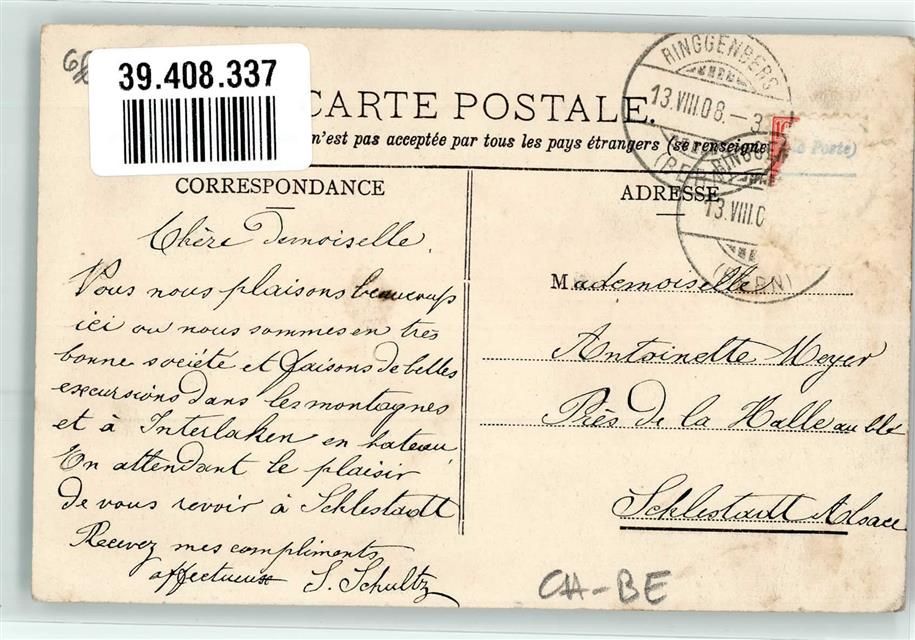 39.408.337
CARTE POSTALE.
n'est pas acceptée par tous les pays étrangers (se renseigner à la Poste)
RINGGENBERG
13.VIII.08.-3
(BERN)
RINGGEN
13.VIII.0
(BERN)
CORRESPONDANCE
Chère Demoiselle,
Vous nous plaisons beaucoup
ici ou nous sommes en très
bonne société et faisons de belles
excursions dans les montagnes
et à Interlaken en bateau.
En attendant le plaisir
de vous revoir à Schlestadt
Recevez mes compliments
affectueux S. Schultz
ADRESSE
Mademoiselle
Antoinette Meyer
Près de la Halle au blé
Schlestadt Alsace
CH-BE